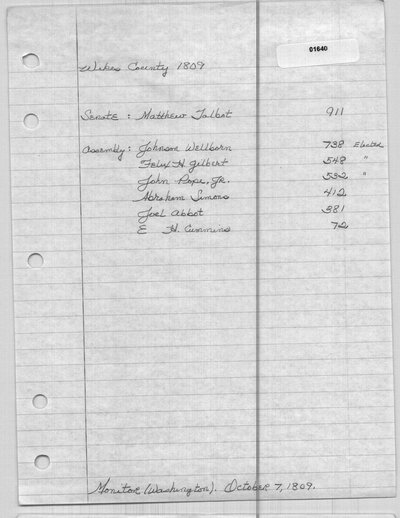 01640
Wilkes County 1809
Senate : Matthew Talbot 911
Assembly : Johnson Wellborn 738 Elected
Felix H. Gilbert 548 "
John Pope, Jr. 532 "
Abraham Simons 412
Joel Abbot 381
E H. Cummins 72
Monitor (Washington). October 7, 1809.